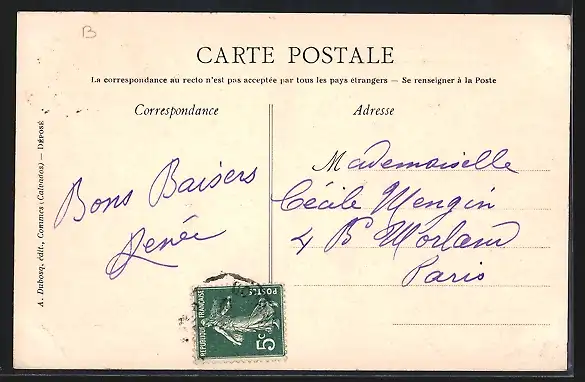 B
CARTE POSTALE
La correspondance au recto n'est pas acceptée par tous les pays étrangers — Se renseigner à la Poste
Correspondance
Adresse
Bons Baisers
Renée
Mademoiselle
Cécile Mengin
4 Bd Morland
Paris
A. Dubosq, édit., Commes (Calvados) — DÉPOSÉ
REPUBLIQUE FRANÇAISE
POSTES
5c